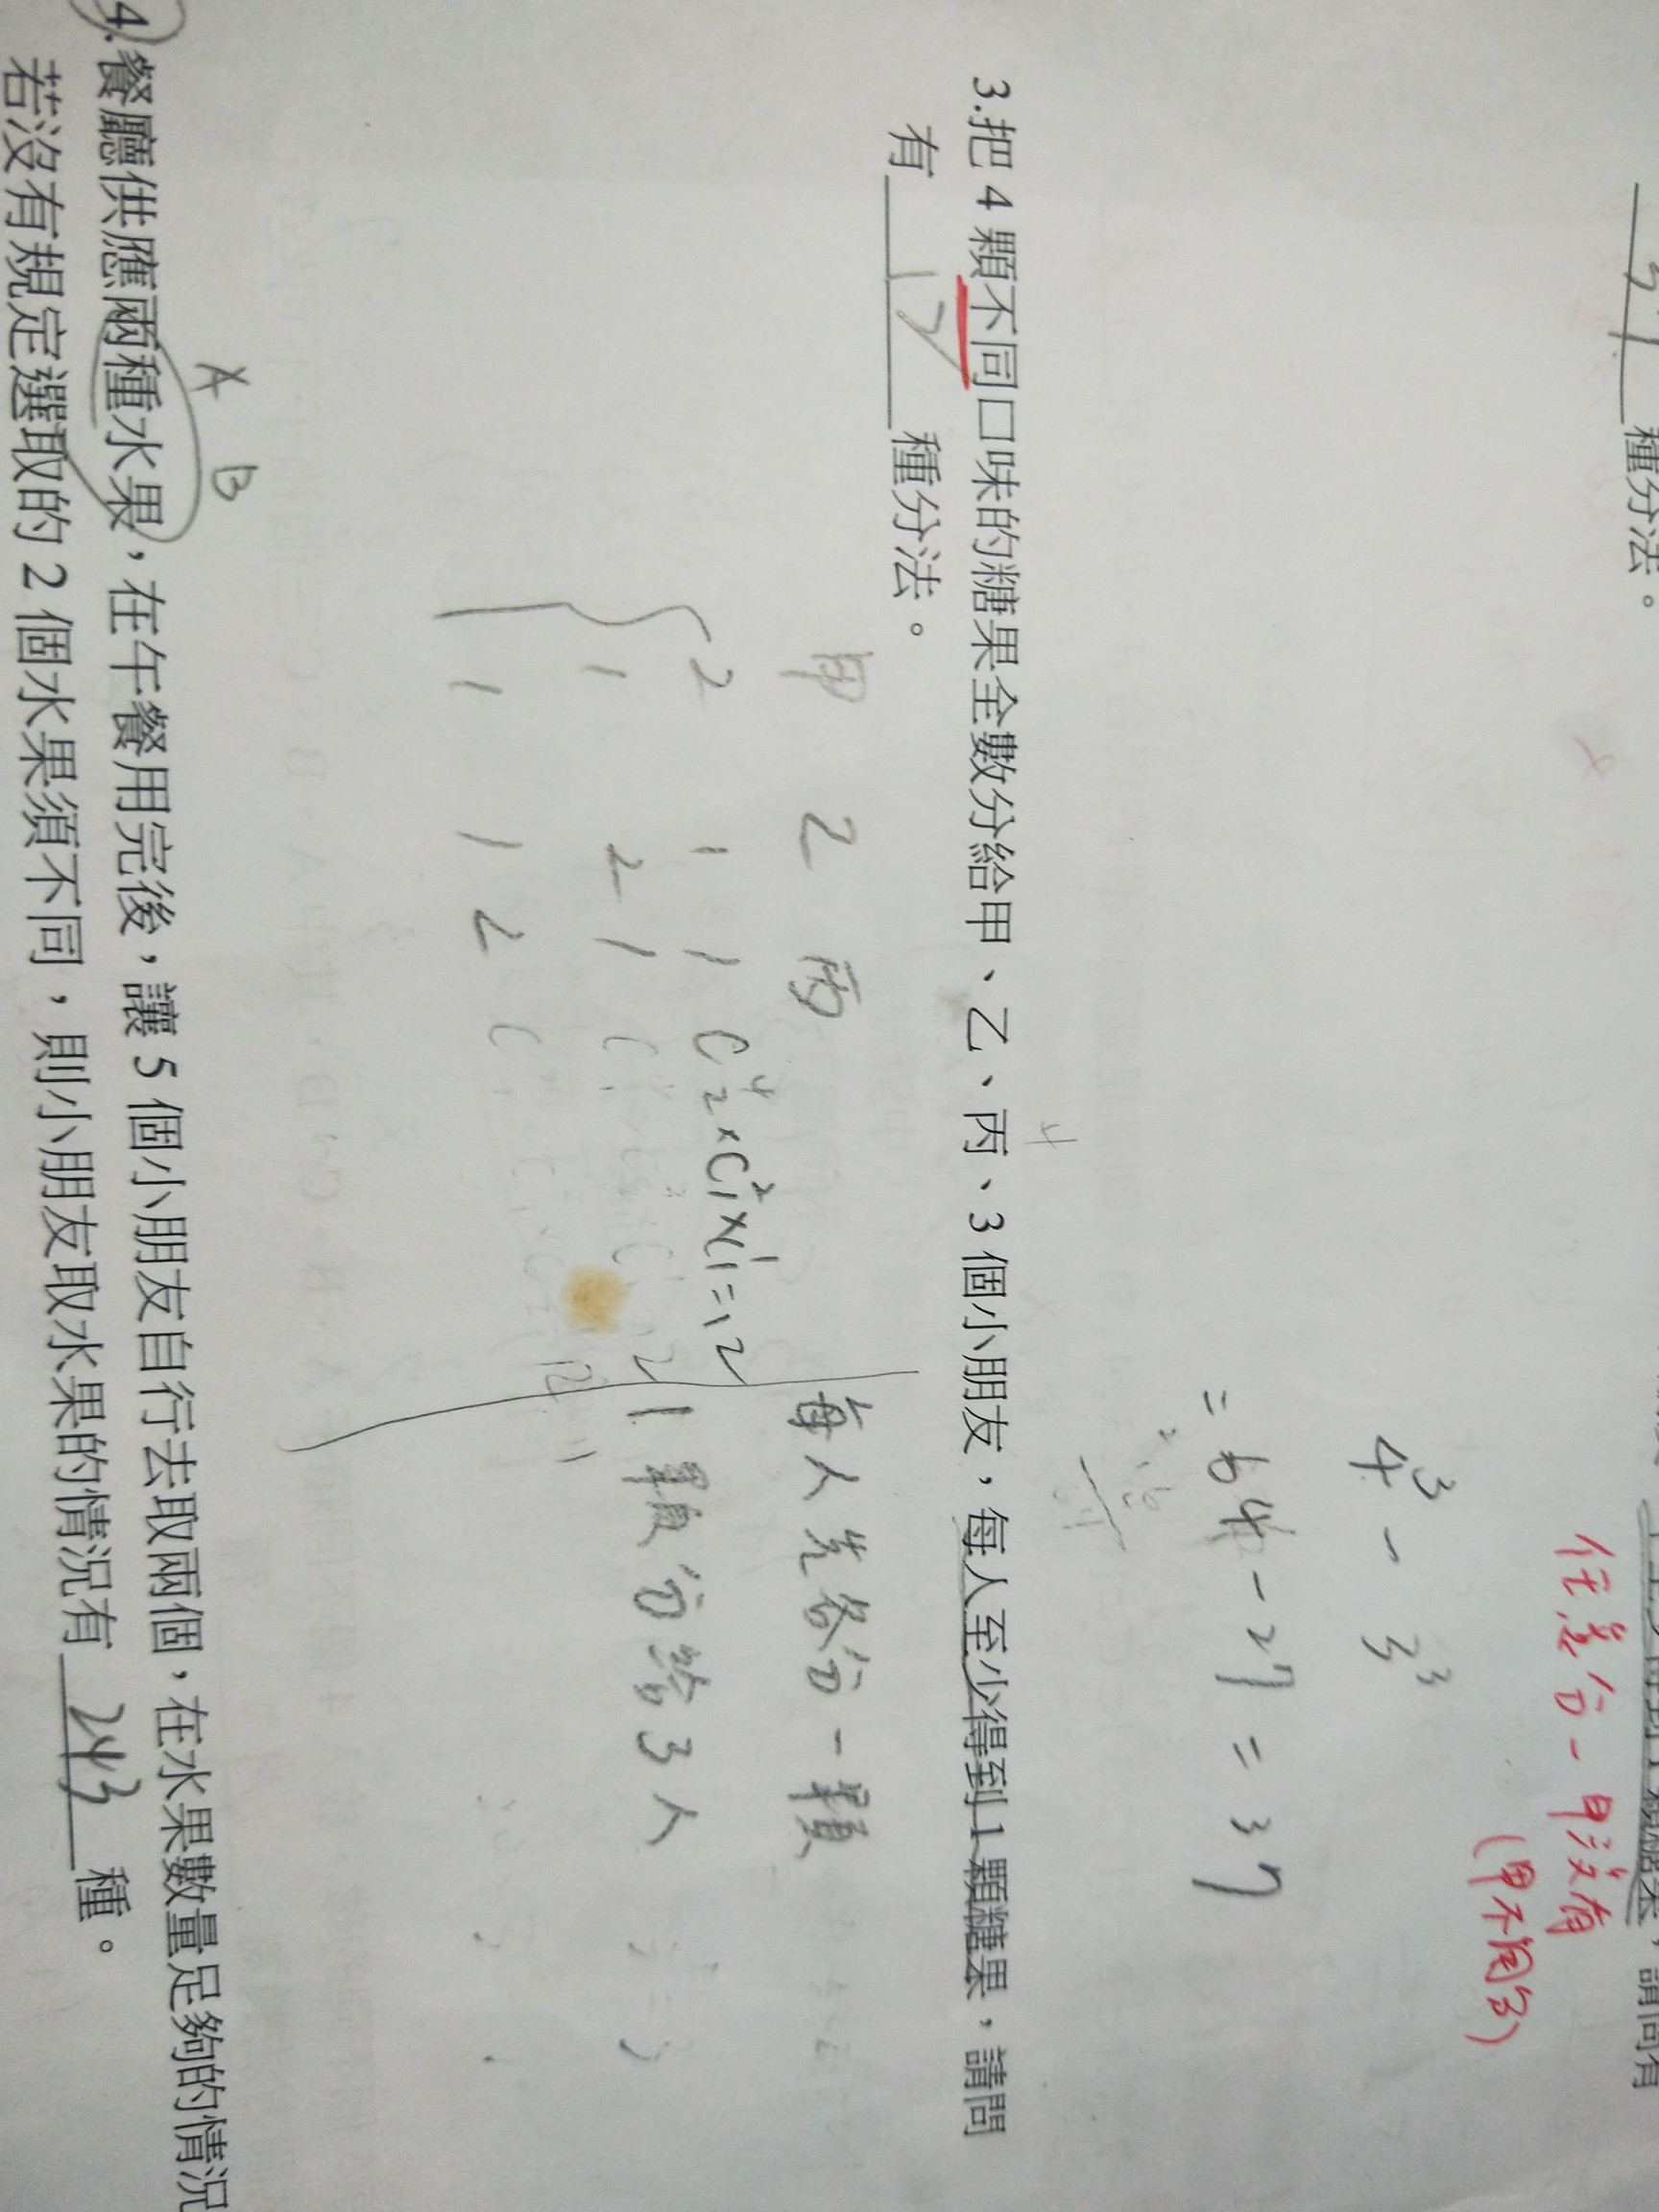 37 種分法。
任意分-甲沒有
(甲不用分)
4³ - 3³
= 64 - 27 = 37
3.把 4 顆不同口味的糖果全數分給甲、乙、丙、3 個小朋友，每人至少得到 1 顆糖果，請問
有 種分法。
甲 乙 丙
每人先各分一顆
2 1 1 C⁴₂×C²₁×C¹₁=12
1 2 1
1顆分給3人
1 1 2
A B
4.餐廳供應兩種水果，在午餐用完後，讓 5 個小朋友自行去取兩個，在水果數量足夠的情況
若沒有規定選取的 2 個水果須不同，則小朋友取水果的情況有 243 種。